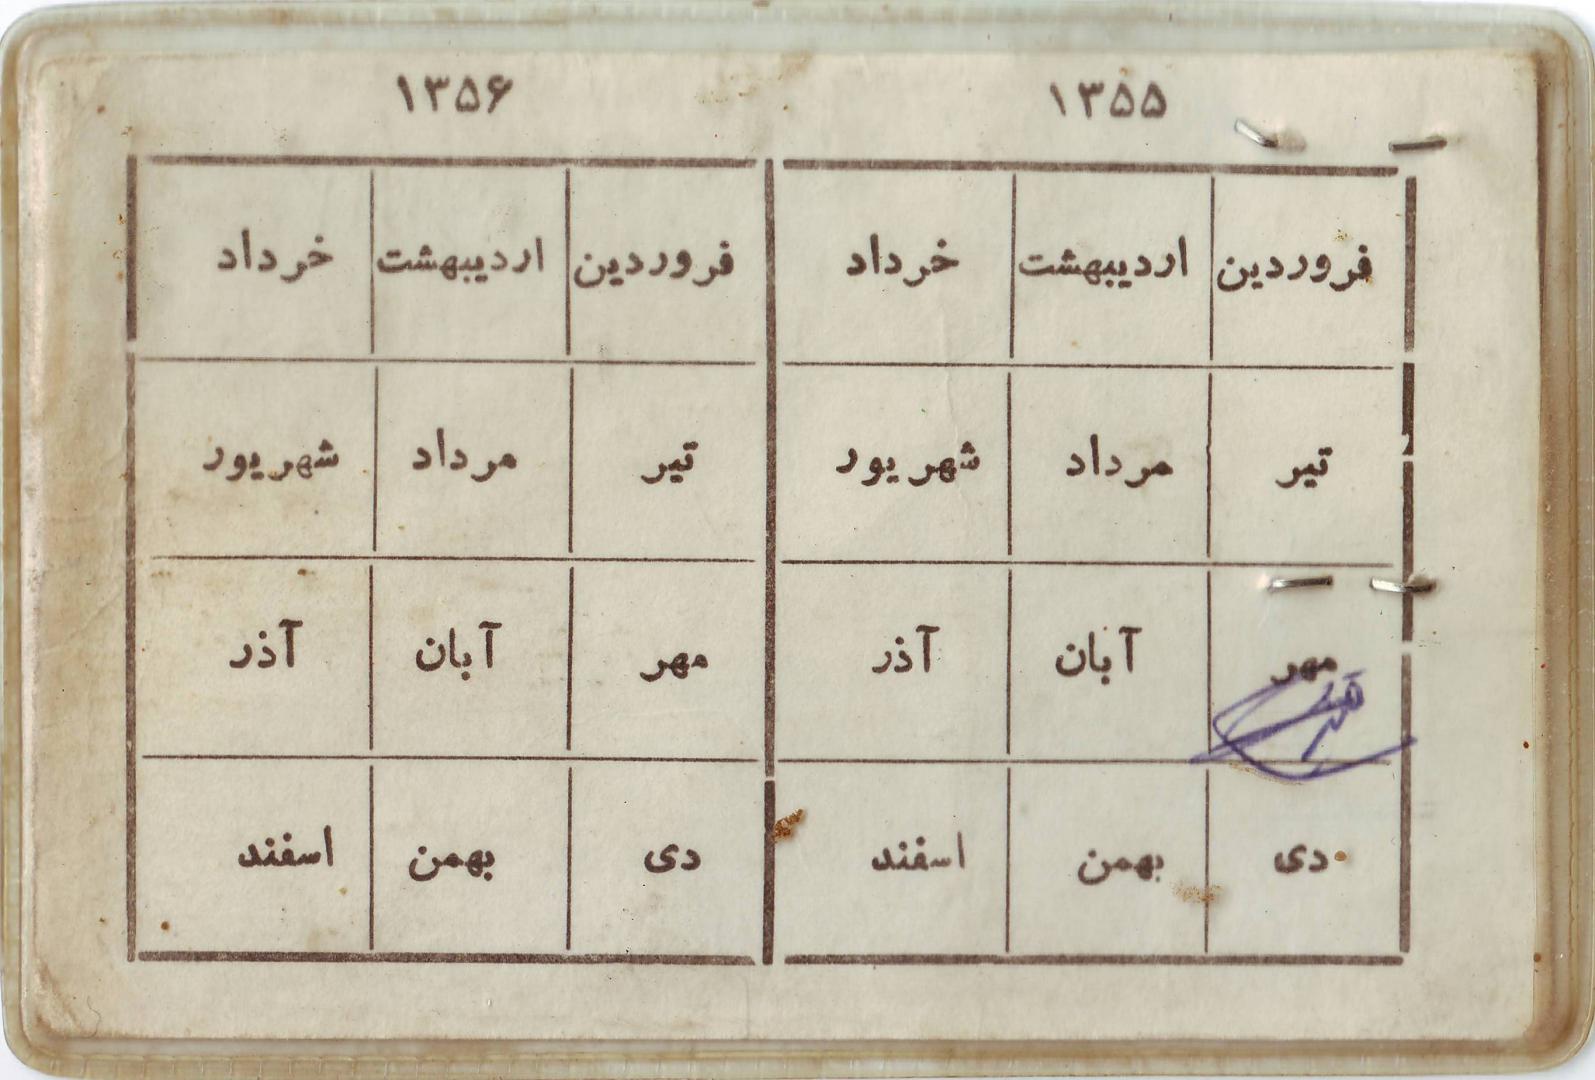 ۱۳۵۵
فروردین اردیبهشت خرداد
تیر مرداد شهریور
مهر آبان آذر
دی بهمن اسفند
۱۳۵۶
فروردین اردیبهشت خرداد
تیر مرداد شهریور
مهر آبان آذر
دی بهمن اسفند